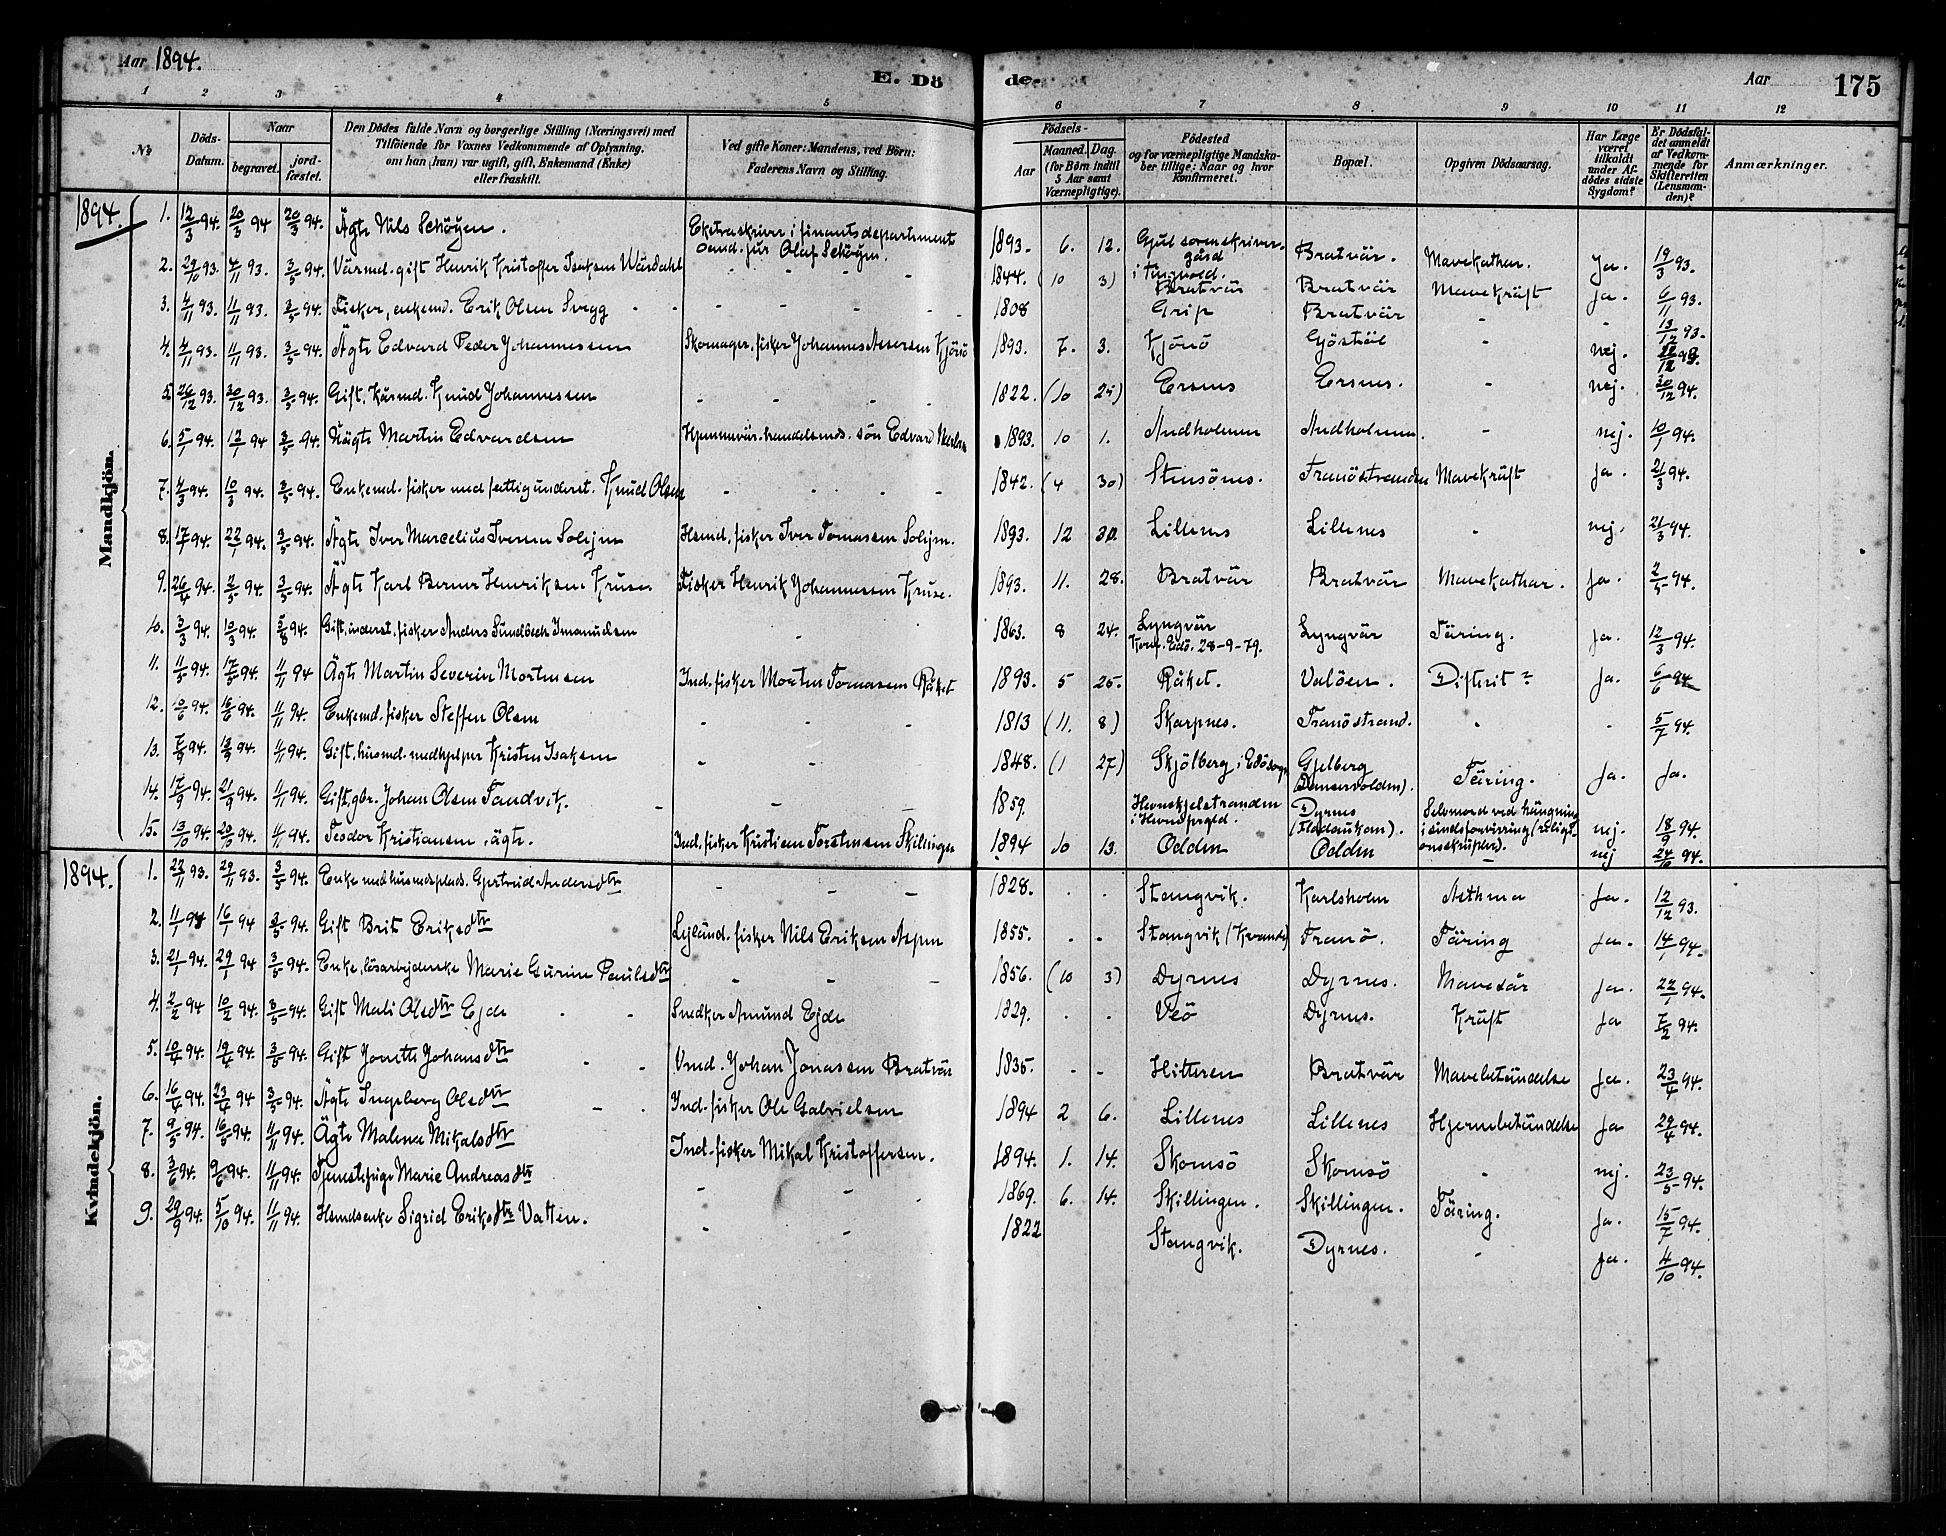 Aar 1894.
E. Dö
de.
Aar
175
1 2 3 4 5 6 7 8 9 10 11 12
No
Döds-Datum.
Naar
begravet.
jord-fæstet.
Den Dödes fulde Navn og borgerlige Stilling (Næringsvei) med
Tilföiende for Voxnes Vedkommende af Oplysning.
om han (hun) var ugift, gift, Enkemand (Enke)
eller fraskilt.
Ved gifte Koner: Mandens, ved Börn:
Faderens Navn og Stilling.
Födsels-
Aar
Maaned. Dag.
(for Börn indtil
5 Aar samt
Værnepligtige).
Födested
og for værnepligtige Mandska-
ber tillige: Naar og hvor
Konfirmeret.
Bopæl.
Opgiven Dödsaarsag.
Har Læge
været
tilkaldt
under Af-
dödes sidste
Sygdom?
Er Dödsfal-
det anmeldt
af Vedkom-
mende for
Skifteretten
(Lensman-
den)?
Anmærkninger.
Mandkjön.
1894.
1. 12/3 94. 20/3 94 20/3 94. Ägte Nils Schöyen. Ekstraskriver i finantsdepartement cand. jur Olaf Schöyen. 1893. 6. 12. sorenskriver-gård i Tingvold. Bratvär. Mavekathar. Ja. 19/3 93.
2. 29/10 93. 4/11 93. 3/5 94. Vårmd. gift Henrik Kristoffer Isaksen Wårdahl 1844. (10 3) Bratvär Bratvär Mavekräft Ja. 6/11 93.
3. 4/11 93. 11/11 93. 3/5 94. Fisker, enkemd. Erik Olsen Svegg - - 1808 Grip Bratvär - - 13/12 93.
4. 4/11 93. 11/11 93. 3/5 94. Ägte Edvard Peder Johannessen Skomager, fisker Johannes Assersen Kjönö 1893. 7. 3. Kjönö - nej.
5. 26/12 93. 30/12 93. 3/5 94. Gift, Kårmd. Knud Johannessen - - 1822. (10 25) Ersnes Ersnes. - nej. 30/12 94.
6. 5/1 94. 12/1 94 3/5 94. Uägte Martin Edvardsen Hjemmevär. handelsmds. sön Edvard 1893. 10 1. Andholmen Andholmen. - nej. 10/1 94.
7. 4/3 94. 10/3 94. 3/5 94. Enkemd. fisker med fattigunderst. Knud Olsen - - 1842. (4 30) Stensönes. Franöstranden Mavekräft Ja. 21/3 94.
8. 17/1 94. 22/1 94. 3/5 94. Ägte Iver Marcelius Iversen Solejm Husmd, fisker Iver Tomassen Solejm. 1893. 12 30. Lillenes Lillenes - nej. 21/3 94.
9. 26/4 94. 2/5 94. 3/5 94. Ägte Karl Berner Henriksen Kruse. Fisker Henrik Johannessen Kruse. 1893. 11. 28. Bratvär Bratvär Mavekathar. Ja. 2/5 94.
10. 3/3 94. 10/3 94. 5/8 94. Gift, inderst, fisker Anders Sundbeck Imanuelsen - 1863. 8 24. Lyngvär Konf. Edö. 28-9-79. Lyngvär Täring. Ja. 12/3 94.
11. 11/5 94. 17/5 94. 11/11 94 Ägte Martin Severin Mortensen Ind. fisker Morten Tomassen Råket 1893. 5 25. Råket. Valöen. Difterit? Ja. 6/6 94
12. 10/6 94. 16/6 94. 11/11 94. Enkemd. fisker Steffen Olsen - - 1813 (11. 8) Skarpnes. Franöstrand. - - 5/7 94.
13. 7/9 94. 13/9 94. 11/11 94. Gift, husmd. medhjelper Kristen Isaksen - - 1848. (1 27) Skjölberg i Edösogn Gjelberg Täring. Ja. Ja.
14. 17/9 94. 21/9 94. 11/11 94. Gift, gbr. Johan Olsen Sandvik. - - 1859. Hevnskjelstranden i Hevne prgld. Dyrnes Selvmord ved hängning i sindsforvirring (religi-onsskrupler). nej. 18/9 94.
15. 13/10 94. 20/10 94. 11/11 94. Teodor Kristiansen, ägte. Ind. fisker Kristian Torstensen Skillingen 1894 10 13. Odden Odden nej 24/10 94.
Kvindekjön.
1894.
1. 22/11 93. 29/11 93. 3/5 94. Enke med husmdsplads. Gjertrud Andersdtr - - 1828. - - Stangvik. Karlsholm Asthma Ja. 12/12 93.
2. 11/1 94 16/1 94 3/5 94. Gift Brit Eriksdtr fisker Nils Eriksen Aspen 1855. - - Stangvik (Kvande) Franö. Täring Ja. 14/1 94.
3. 21/1 94. 29/1 94 3/5 94. Enke, lösarbejderske Marie Gurine Paulsdtr - - 1856. (10 3) Dyrnes Dyrnes. Mavesår Ja. 22/1 94.
4. 2/2 94 10/2 94. 3/5 94. Gift Mali Olsdtr Ejde Snedker Amund Ejde 1829. - - Veö Dyrnes. Kräft Ja 7/2 94.
5. 10/4 94. 19/4 94. 3/5 94. Gift Jonette Johansdtr Vmd. Johan Jonassen Bratvär 1835. - - Hitteren Bratvär Mavebetändelse Ja. 23/4 94.
6. 16/4 94. 23/4 94 3/5 94. Ägte Ingeberg Olsdtr Ind. fisker Ole Gabrielsen 1894 2 6. Lillenes Lillenes Hjernebetändelse Ja 29/4 94.
7. 9/5 94. 16/5 94. 11/11 94. Ägte Malene Mikalsdtr Ind. fisker Mikal Kristoffersen. 1894. 1. 14. Skomsö Skomsö - nej. 23/5 94.
8. 3/6 94. 9/6 94. 11/11 94. Tjenestepige Marie Andreasdtr - - 1869. 6. 14. Skillingen. Skillingen. Täring. Ja. 15/7 94.
9. 29/9 94. 5/10 94. 11/11 94. Husmdsenke Sigrid Eriksdtr Vatten. - - 1822 Stangvik. Dyrnes. - Ja. 4/10 94.